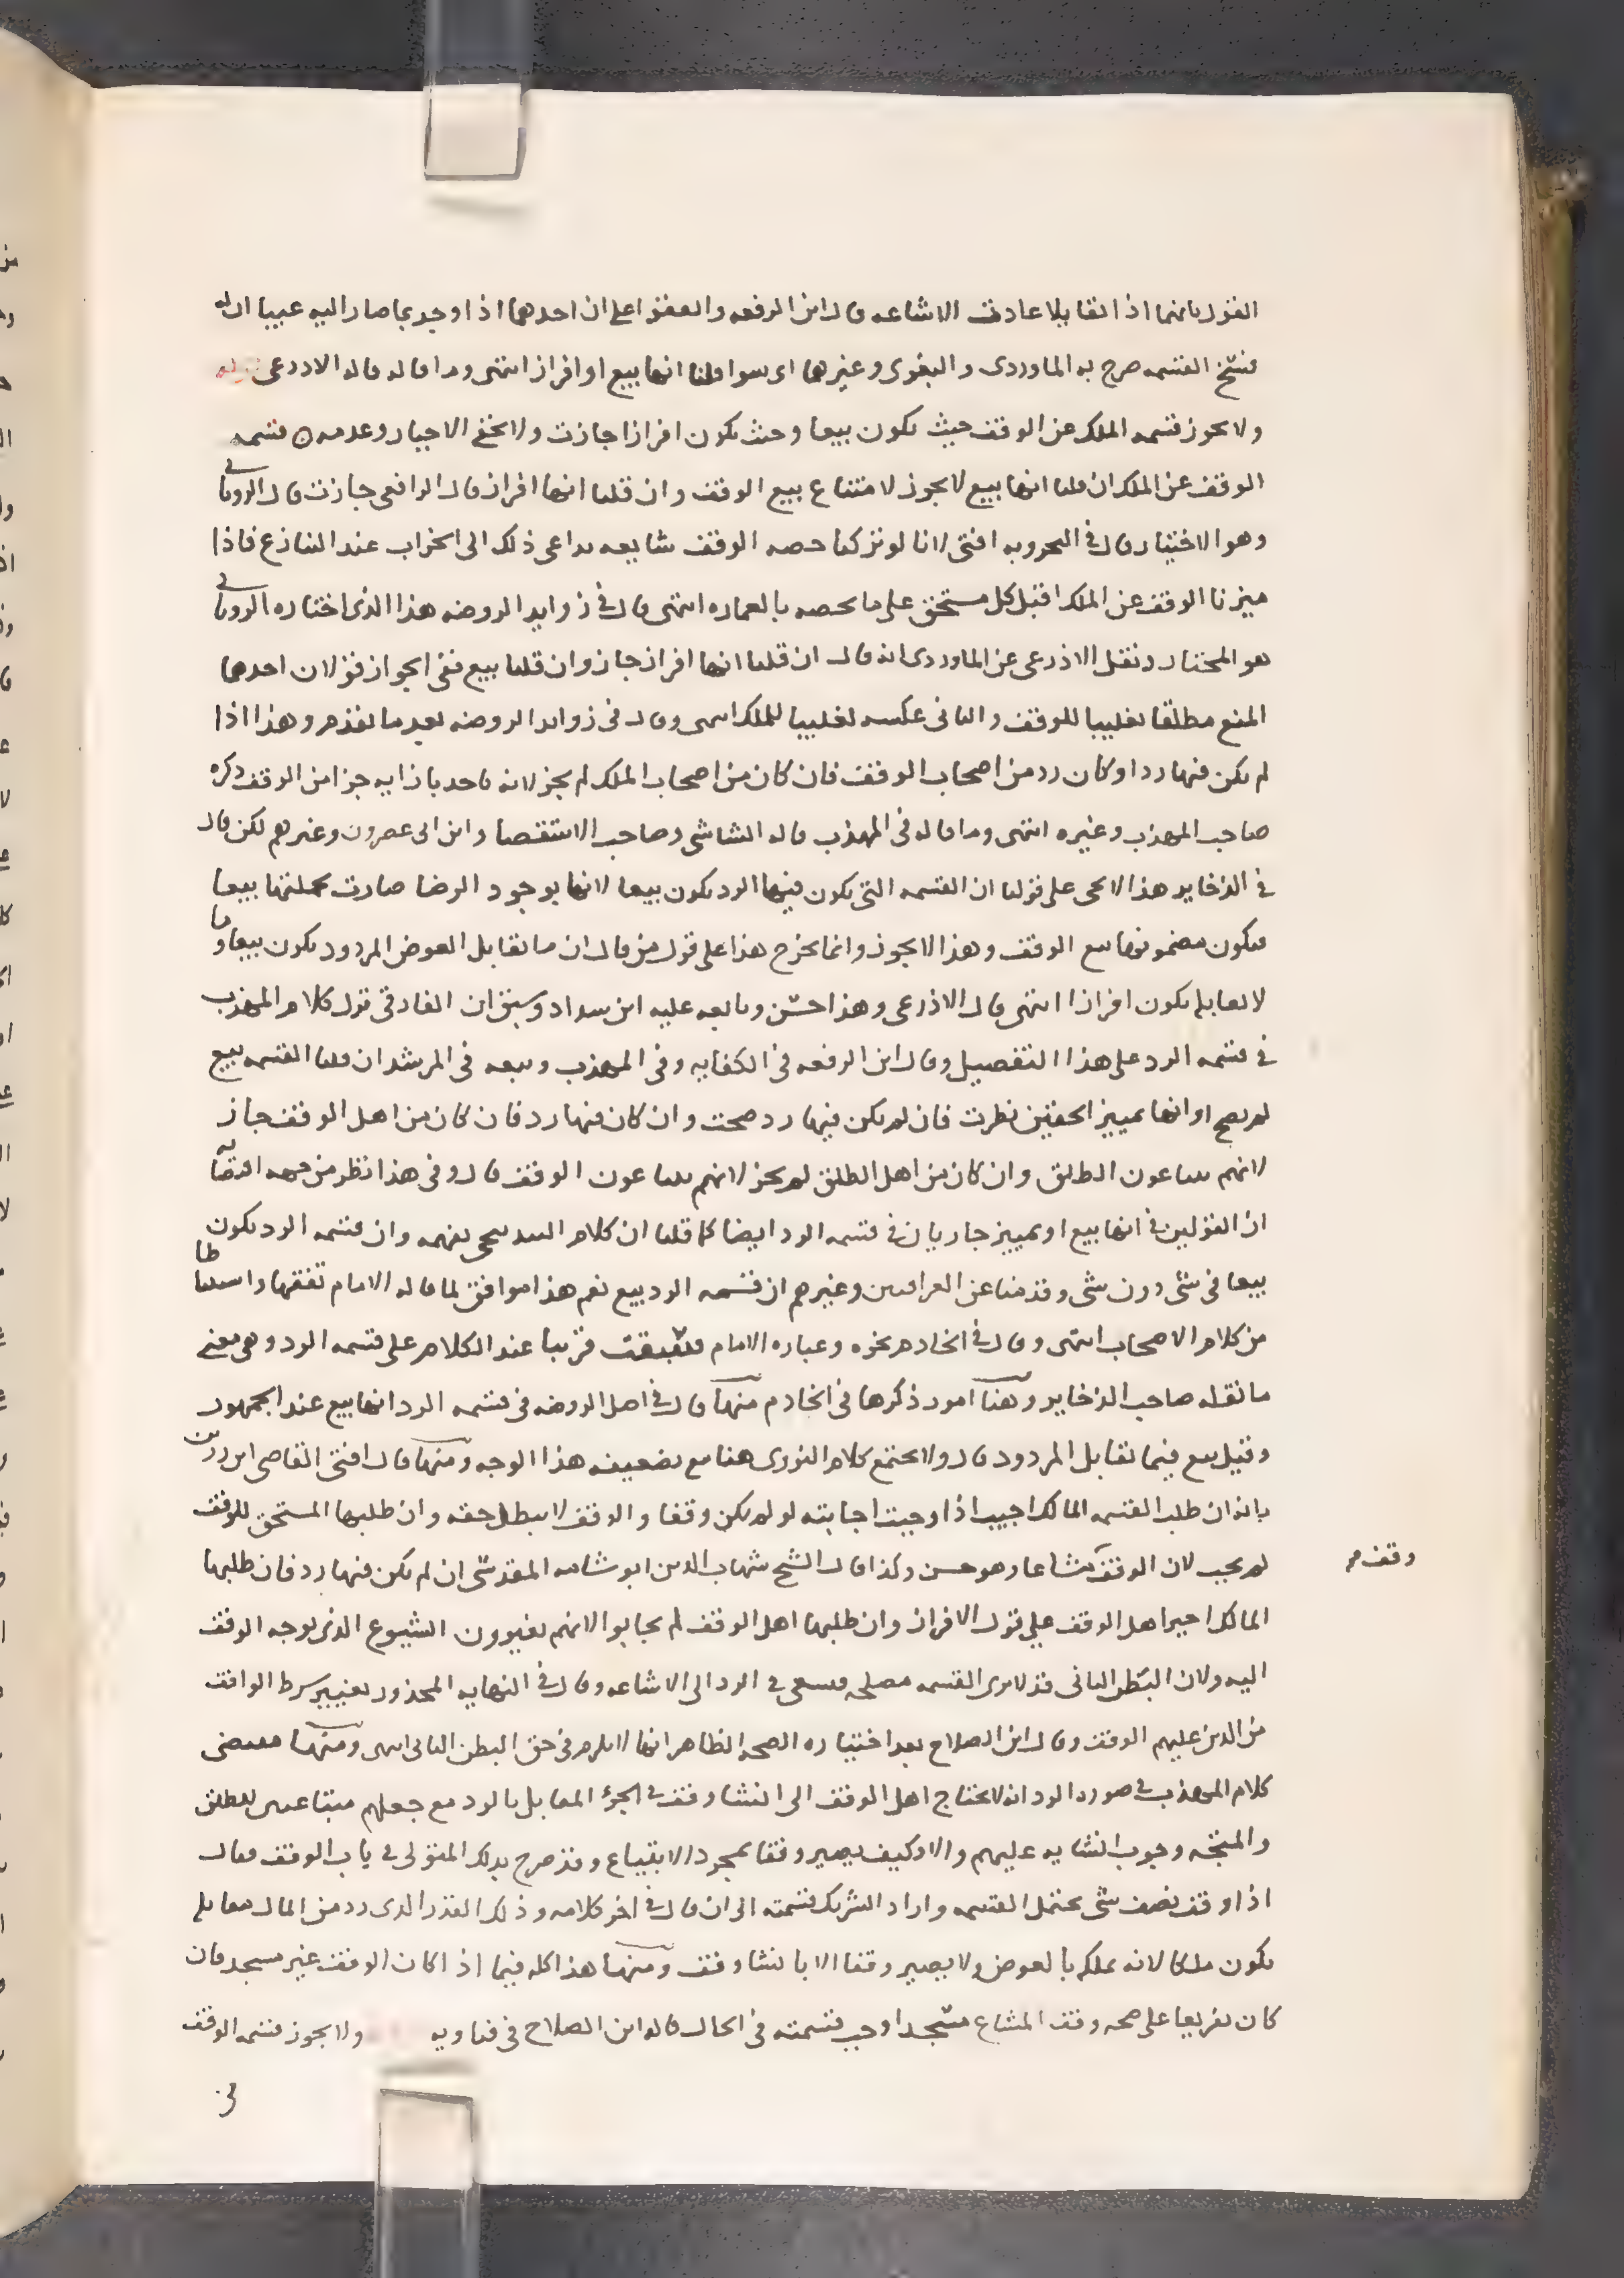 القول بانهما اذا تقايلا عادت الاشاعه قال ابن الرفعه واتفقوا على ان احدهما اذا وجد بما صار اليه عيبا ان له
فسخ القسمه صرح به الماوردى والبغوى وغيرها اى سوا قلنا انها بيع او افراز انتهى وما قاله قاله الاذرعى قوله
ولا يجوز قسمه الملك عن الوقف حيث تكون بيعا وحيث تكون افرازا جازت ولا يخفى الاجبار وعدمه ٥ قسمه
الوقف عن الملك ان قلنا انها بيع لا يجوز لامتناع بيع الوقف وان قلنا انها افراز قال الرافعى جازت قال الرويانى
وهو الاختيار قال فى البحر وبه افتى لانا لو تركنا حصه الوقف شايعه تداعى ذلك الى الخراب عند التنازع فاذا
ميزنا الوقف عن الملك اقبل كل مستحق على ما يخصه بالعماره انتهى قال فى زوايد الروضه هذا الذى اختاره الرويانى
هو المختار ونقل الاذرعى عن الماوردى انه قال ان قلنا انها افراز جاز وان قلنا بيع ففى الجواز قولان احدهما
المنع مطلقا تغليبا للوقف والثانى عكسه تغليبا للملك انتهى وقال فى زوايد الروضه بعد ما تقدم وهذا اذا
لم يكن فيها رد او كان رد من اصحاب الوقف فان كان من اصحاب الملك لم يجز لانه ياخد بازايه جزا من الوقف ذكره
صاحب المهذب وغيره انتهى وما قاله فى المهذب قاله الشاشى وصاحب الاستقصا وابن ابى عصرون وغيرهم لكن قال
فى الذخاير هذا لا يجى على قولنا ان القسمه التى يكون فيها الرد يكون بيعا لانها بوجود الرضا صارت بجملتها بيعا
فيكون مضمونها بيع الوقف وهذا لا يجوز وانما يخرج هذا على قول من قال ان ما يقابل العوض المردود يكون بيعا وما
لا يقابله يكون افرازا انتهى قال الاذرعى وهذا حسن وتابعه عليه ابن شداد وسبق ان الفارقى نزل كلام المهذب
فى قسمه الرد على هذا التفصيل وقال ابن الرفعه فى الكفايه وفى المهذب وتبعه فى المرشد ان قلنا القسمه بيع
لم يصح او انها تمييز الحقين نظرت فان لم يكن فيها رد صحت وان كان فيها رد فان كان من اهل الوقف جاز
لانهم يبتاعون الطلق وان كان من اهل الطلق لم يجز لانهم يبتاعون الوقف قال وفى هذا نظر من جهه اقتضايه
ان القولين فى انها بيع او تمييز جاريان فى قسمه الرد ايضا كما قلنا ان كلام البندنيجى يفهمه وان قسمه الرد تكون
بيعا فى شى دون شى وقدمنا عن العراقيين وغيرهم ان قسمه الرد بيع نعم هذا موافق لما قاله الامام تفقها واستنباطا
من كلام الاصحاب انتهى وقال فى الخادم نحوه وعباره الامام سبقت قريبا عند الكلام على قسمه الرد وهى معنى
ما نقله صاحب الذخاير وهنا امور ذكرها فى الخادم منها قال فى اصل الروضه فى قسمه الرد انها بيع عند الجمهور
وقيل بيع فيما يقابل المردود قال ولا يجتمع كلام النووى هنا مع تضعيفه هذا الوجه ومنها قال افتى القاضى ابن رزين
بانه ان طلب القسمه المالك اجيب اذا وجبت اجابته لو لم يكن وقفا والوقف لا يبطل حقه وان طلبها المستحق للوقف
لم يجب لان الوقف مشاعا وهو حسن وكذا قال الشيخ شهاب الدين ابو شامه المقدسى ان لم يكن فيها رد فان طلبها
وقف م
المالك اجبر اهل الوقف على قول الافراز وان طلبها اهل الوقف لم يجابوا لانهم يغيرون الشيوع الذى توجه الوقف
اليه ولان البطن الثانى قد لا يرى القسمه مصلحه فيسعى فى الرد الى الاشاعه وقال فى النهايه المحذور تغيير شرط الواقف
من الذين عليهم الوقف وقال ابن الصلاح بعد اختياره الصحه الظاهر انها لا تلزم فى حق البطن الثانى انتهى ومنها مقتضى
كلام المهذب فى صوره الرد انه لا يحتاج اهل الوقف الى انشا وقف فى الجزء المقابل بالرد مع جعلهم مبتاعين للطلق
والمتجه وجوب انشايه عليهم والا وكيف يصير وقفا بمجرد الابتياع وقد صرح بذلك المتولى فى باب الوقف فقال
اذا وقف نصف شى يحتمل القسمه واراد الشريك قسمته الى ان قال فى اخر كلامه وذلك القدر الذى رد من المال مقابله
يكون ملكا لانه يملكه بالعوض ولا يصير وقفا الا بانشا وقف ومنها هذا كله فيما اذا كان الوقف غير مسجد فان
كان تفريعا على صحه وقف المشاع مسجدا وجب قسمته فى الحال قاله ابن الصلاح فى فتاويه ولا يجوز قسمه الوقف